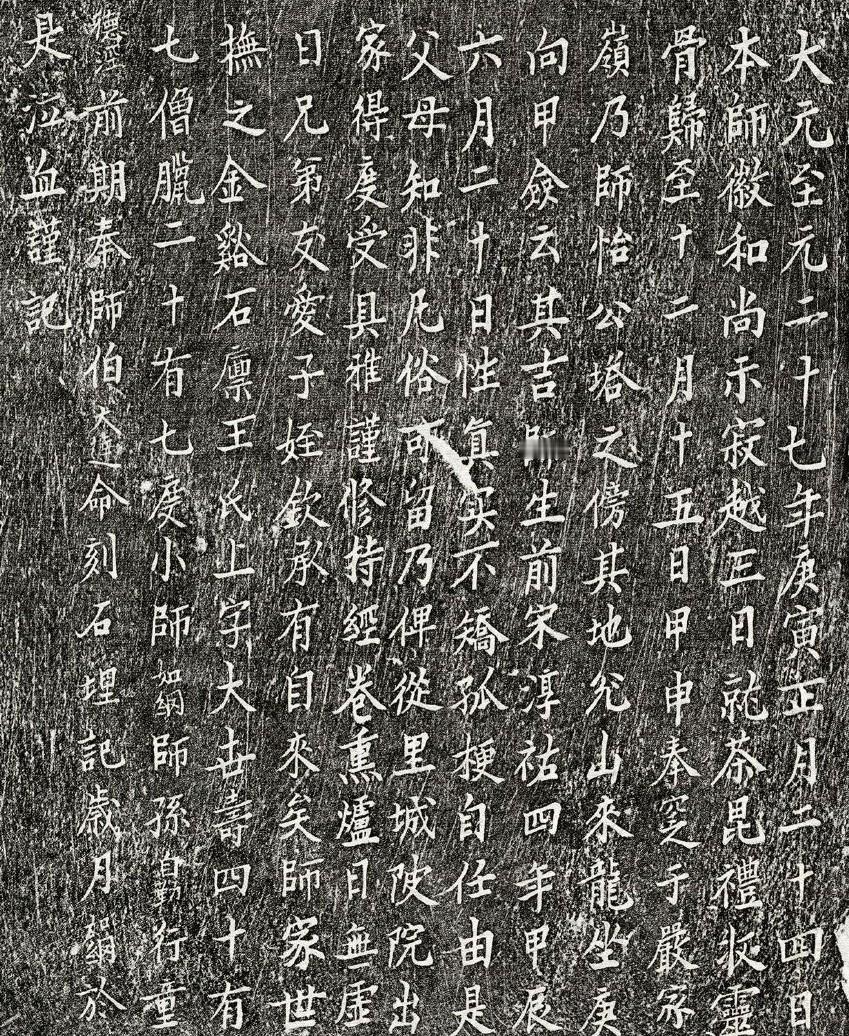 大元至元二十七年庚寅正月二十四日
本師徽和尚示寂越三日就茶昆禮收靈
骨歸至十二月十五日甲申奉窆于嚴家
嶺乃師怡公塔之傍其地兊山來龍坐庚
向甲僉云其吉 生前宋淳祐四年甲辰
六月二十日性真实不矯孤梗自任由是
父母知非凢俗可留乃俾從里城陂院出
家得度受具雅謹修持經卷熏爐日無虛
日兄弟友愛子姪欽承有自來矣師家世
撫之金谿石廪王氏上字大去壽四十有
七僧臘二十有七度小師如綱師孫自勤行童
德淫前期奉師伯大連命刻石埋記歲月絹於
是泣血謹記